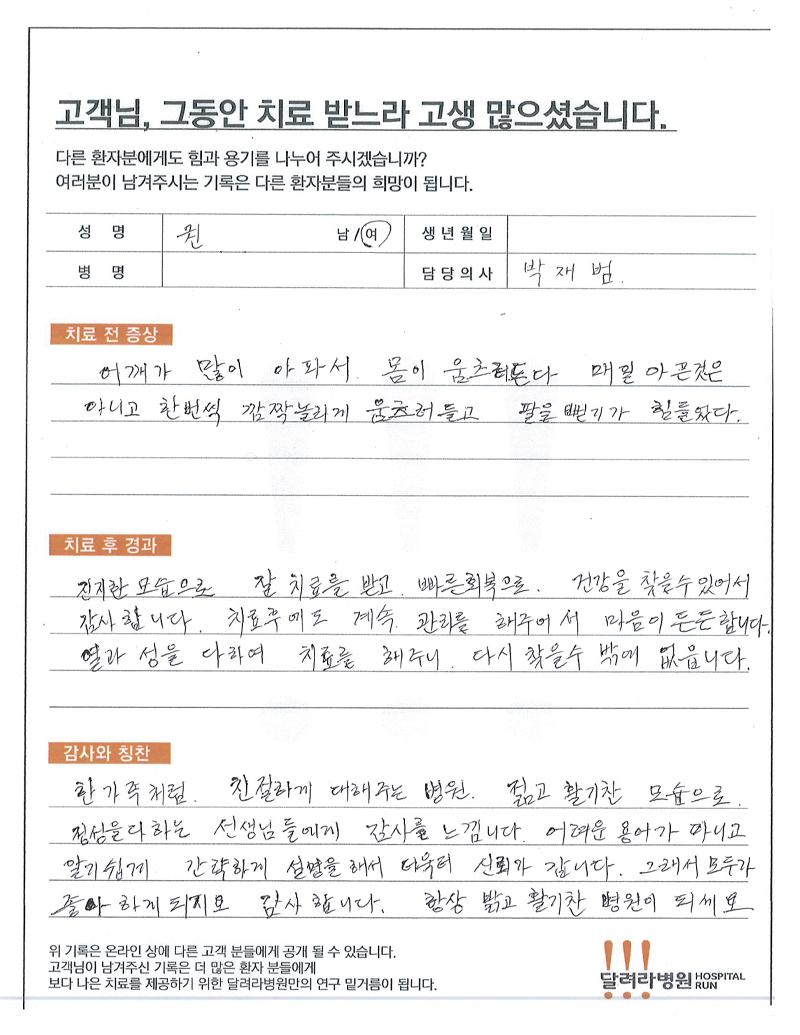 고객님, 그동안 치료 받느라 고생 많으셨습니다.
다른 환자분에게도 힘과 용기를 나누어 주시겠습니까?
여러분이 남겨주시는 기록은 다른 환자분들의 희망이 됩니다.
성 명 권 남/여 생년월일
병 명 담당의사 박재범.
치료 전 증상
어깨가 많이 아파서. 몸이 움츠러든다 매일 아픈것은
아니고 한번씩 깜짝놀라게 움츠러들고 팔을 뻗기가 힘들았다.
치료 후 경과
진지한 모습으로 잘 치료를 받고. 빠른회복으로. 건강을 찾을수있어서
감사합니다. 치료후에도 계속 관리를 해주어서 마음이 든든합니다.
열과 성을 다하여 치료를 해주니. 다시 찾을수 밖에 없읍니다.
감사와 칭찬
한가족처럼. 친절하게 대해주는 병원. 젊고 활기찬 모습으로.
정성을다하는 선생님들에게 감사를 느낍니다. 어려운 용어가 아니고
알기쉽게 간략하게 설명을해서 더욱더 신뢰가 갑니다. 그래서 모두가
좋아하게 되지요 감사합니다. 항상 밝고 활기찬 병원이 되세요
위 기록은 온라인 상에 다른 고객 분들에게 공개 될 수 있습니다.
고객님이 남겨주신 기록은 더 많은 환자 분들에게
보다 나은 치료를 제공하기 위한 달려라병원만의 연구 밑거름이 됩니다.
!!!
달려라병원 HOSPITAL RUN